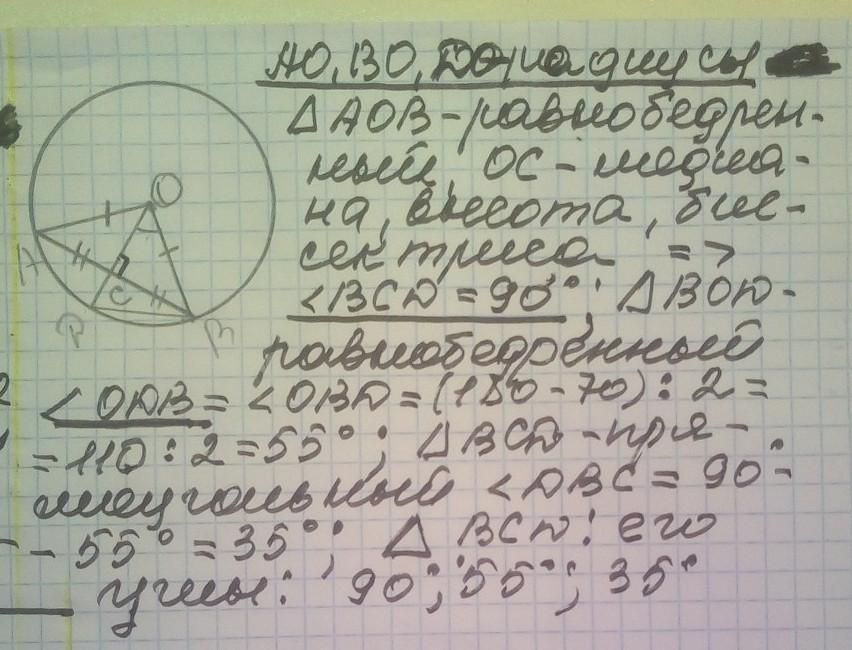 АО, ВО, DО, радиусы
△АОВ - равнобедрен-
ный, ОС - медиа-
на, высота, бис-
сектриса =>
<BCD = 90°; △BOD -
равнобедренный
<ODB = <OBD = (180 - 70) : 2 =
= 110 : 2 = 55°; △BCD - пря-
моугольный <DBC = 90° -
- 55° = 35°; △BCD: его
углы: 90°; 55°; 35°
О
А
С
D
В